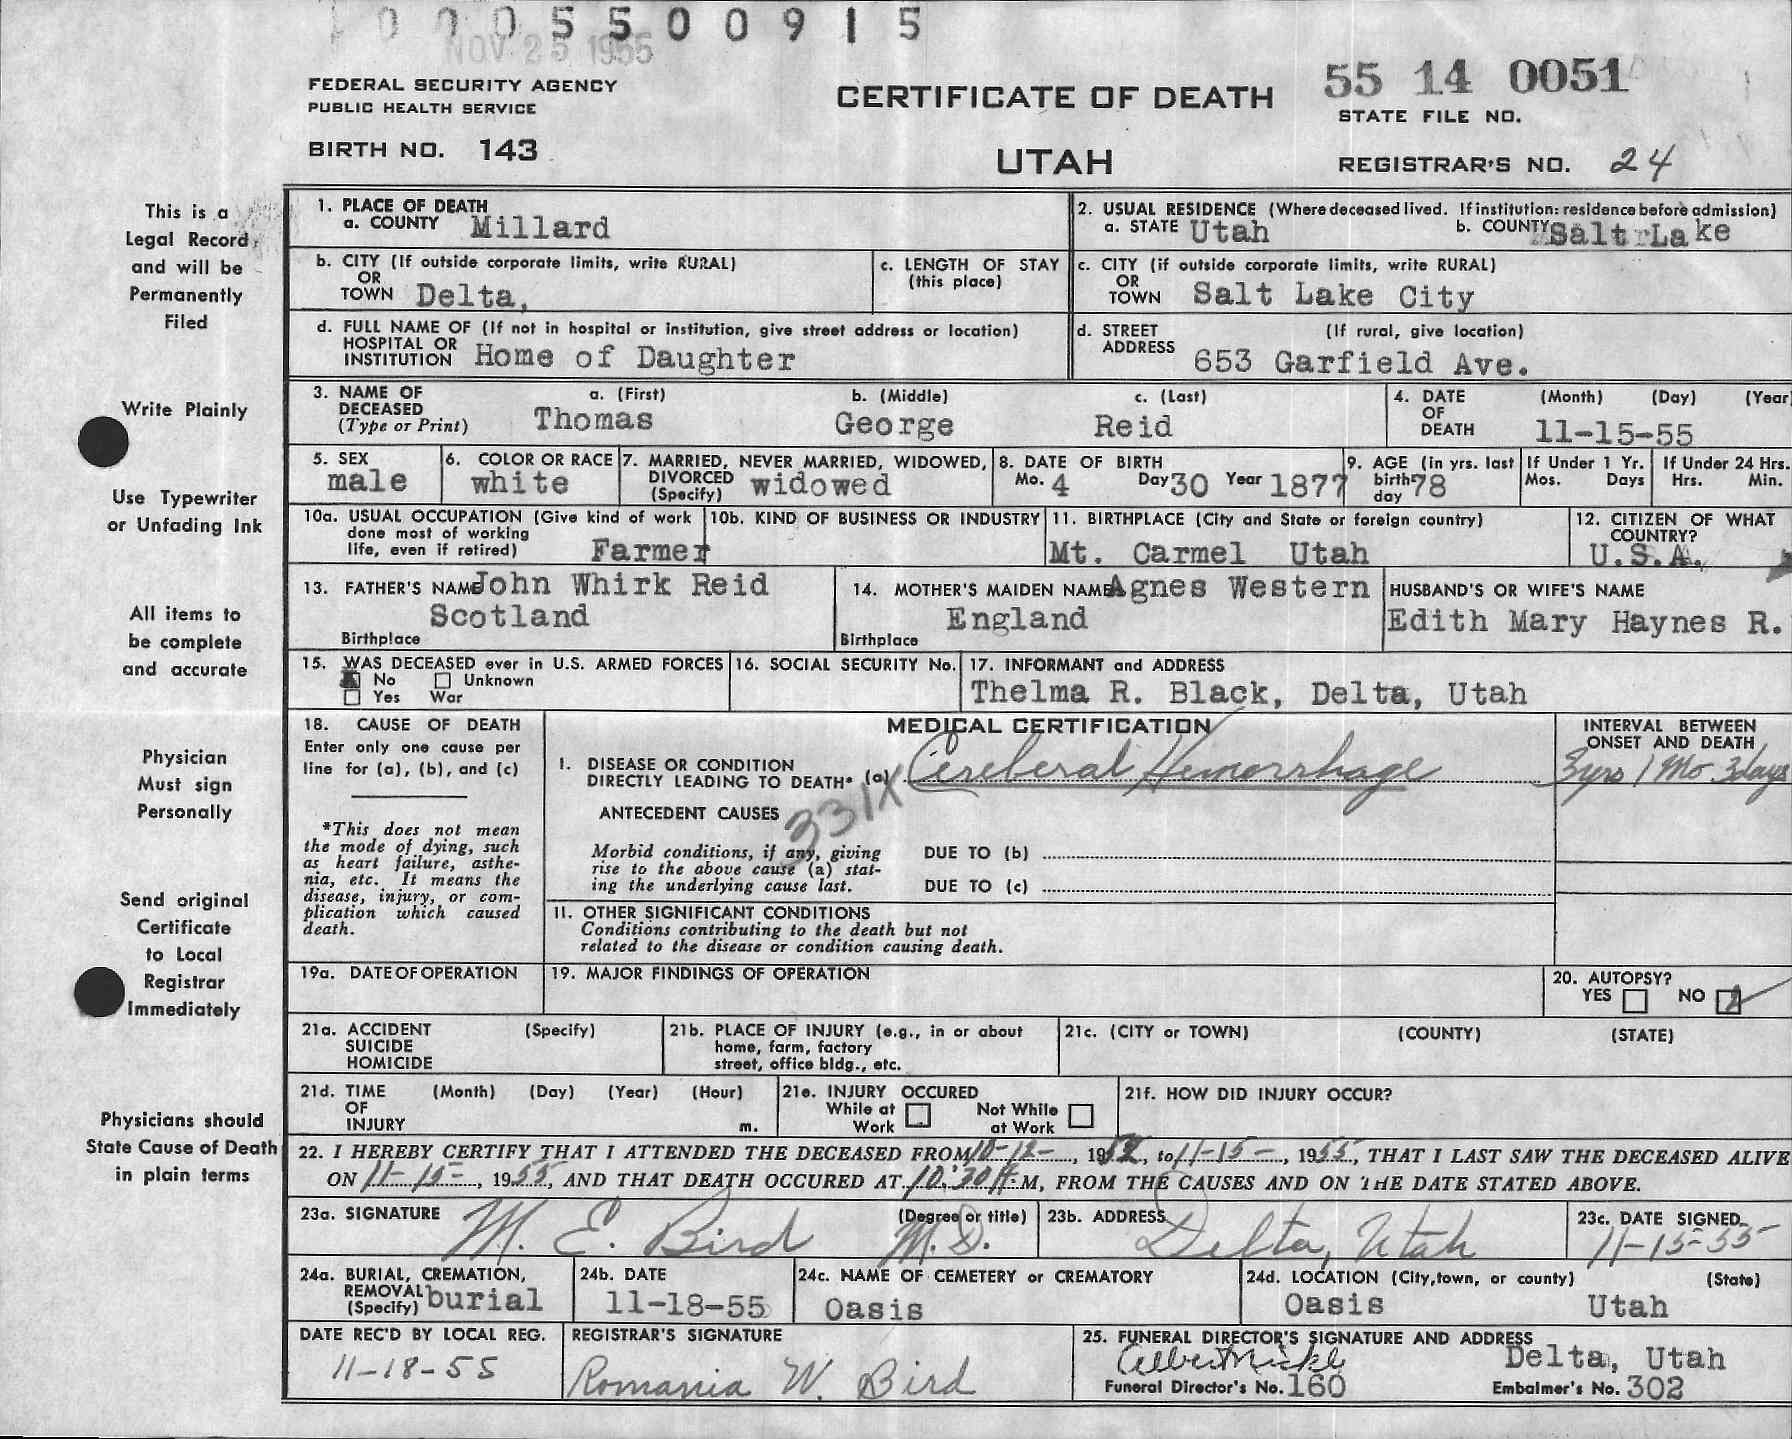 0005500915
NOV 25 1955
FEDERAL SECURITY AGENCY
PUBLIC HEALTH SERVICE
BIRTH NO. 143
CERTIFICATE OF DEATH
UTAH
55 14 0051
STATE FILE NO.
REGISTRAR'S NO. 24
This is a
Legal Record,
and will be
Permanently
Filed
Write Plainly
Use Typewriter
or Unfading Ink
All items to
be complete
and accurate
Physician
Must sign
Personally
Send original
Certificate
to Local
Registrar
Immediately
Physicians should
State Cause of Death
in plain terms
1. PLACE OF DEATH
a. COUNTY Millard
2. USUAL RESIDENCE (Where deceased lived. If institution: residence before admission)
a. STATE Utah b. COUNTY Salt Lake
b. CITY (If outside corporate limits, write RURAL)
OR
TOWN Delta,
c. LENGTH OF STAY
(this place)
c. CITY (if outside corporate limits, write RURAL)
OR
TOWN Salt Lake City
d. FULL NAME OF (If not in hospital or institution, give street address or location)
HOSPITAL OR
INSTITUTION Home of Daughter
d. STREET (If rural, give location)
ADDRESS 653 Garfield Ave.
3. NAME OF
DECEASED
(Type or Print)
a. (First) b. (Middle) c. (Last)
Thomas George Reid
4. DATE (Month) (Day) (Year)
OF
DEATH 11-15-55
5. SEX
male
6. COLOR OR RACE
white
7. MARRIED, NEVER MARRIED, WIDOWED,
DIVORCED
(Specify) widowed
8. DATE OF BIRTH
Mo. 4 Day 30 Year 1877
9. AGE (in yrs. last
birth-
day 78
If Under 1 Yr.
Mos. Days
If Under 24 Hrs.
Hrs. Min.
10a. USUAL OCCUPATION (Give kind of work
done most of working
life, even if retired) Farmer
10b. KIND OF BUSINESS OR INDUSTRY
11. BIRTHPLACE (City and State or foreign country)
Mt. Carmel Utah
12. CITIZEN OF WHAT
COUNTRY?
U.S.A.
13. FATHER'S NAME John Whirk Reid
Scotland
Birthplace
14. MOTHER'S MAIDEN NAME Agnes Western
England
Birthplace
HUSBAND'S OR WIFE'S NAME
Edith Mary Haynes R.
15. WAS DECEASED ever in U.S. ARMED FORCES
No Unknown
Yes War
16. SOCIAL SECURITY No.
17. INFORMANT and ADDRESS
Thelma R. Black, Delta, Utah
18. CAUSE OF DEATH
Enter only one cause per
line for (a), (b), and (c)
*This does not mean
the mode of dying, such
as heart failure, asthe-
nia, etc. It means the
disease, injury, or com-
plication which caused
death.
MEDICAL CERTIFICATION
I. DISEASE OR CONDITION
DIRECTLY LEADING TO DEATH* (a) Cereberal Hemorrhage
331X
ANTECEDENT CAUSES
Morbid conditions, if any, giving
rise to the above cause (a) stat-
ing the underlying cause last.
DUE TO (b)
DUE TO (c)
INTERVAL BETWEEN
ONSET AND DEATH
3 yrs 1 Mo 3 days
II. OTHER SIGNIFICANT CONDITIONS
Conditions contributing to the death but not
related to the disease or condition causing death.
19a. DATE OF OPERATION
19. MAJOR FINDINGS OF OPERATION
20. AUTOPSY?
YES NO
21a. ACCIDENT (Specify)
SUICIDE
HOMICIDE
21b. PLACE OF INJURY (e.g., in or about
home, farm, factory
street, office bldg., etc.
21c. (CITY or TOWN) (COUNTY) (STATE)
21d. TIME (Month) (Day) (Year) (Hour)
OF
INJURY m.
21e. INJURY OCCURED
While at Work
Not While at Work
21f. HOW DID INJURY OCCUR?
22. I HEREBY CERTIFY THAT I ATTENDED THE DECEASED FROM 10-12-, 1952, to 11-15-, 1955, THAT I LAST SAW THE DECEASED ALIVE
ON 11-15-, 1955, AND THAT DEATH OCCURED AT 10:30 A. M, FROM THE CAUSES AND ON THE DATE STATED ABOVE.
23a. SIGNATURE (Degree or title)
M. E. Bird M.D.
23b. ADDRESS
Delta, Utah
23c. DATE SIGNED
11-15-55
24a. BURIAL, CREMATION,
REMOVAL
(Specify) burial
24b. DATE
11-18-55
24c. NAME OF CEMETERY or CREMATORY
Oasis
24d. LOCATION (City, town, or county) (State)
Oasis Utah
DATE REC'D BY LOCAL REG.
11-18-55
REGISTRAR'S SIGNATURE
Romania W. Bird
25. FUNERAL DIRECTOR'S SIGNATURE AND ADDRESS
Delta, Utah
Funeral Director's No. 160 Embalmer's No. 302